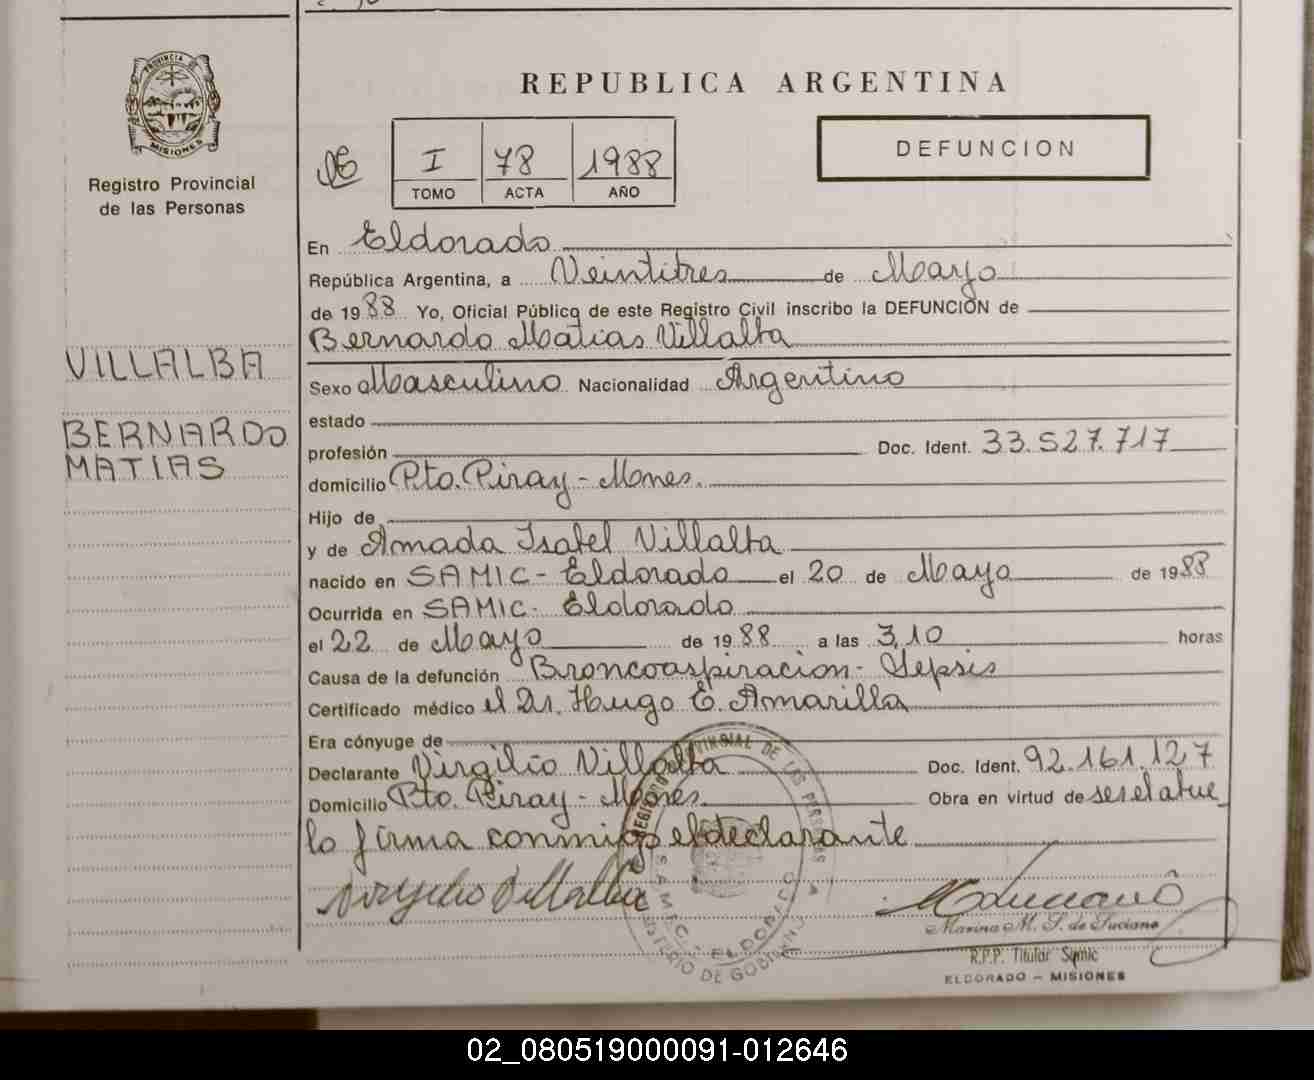 PROVINCIA DE
MISIONES
Registro Provincial
de las Personas
VILLALBA
BERNARDO
MATIAS
REPUBLICA ARGENTINA
I 78 1988
TOMO ACTA AÑO
DEFUNCION
En Eldorado
República Argentina, a Veintitres de Mayo
de 1988 Yo, Oficial Público de este Registro Civil inscribo la DEFUNCION de
Bernardo Matias Villalba
Sexo Masculino Nacionalidad Argentino
estado
profesión Doc. Ident. 33.527.717
domicilio Pto. Piray - Mnes.
Hijo de
y de Amada Isabel Villalba
nacido en SAMIC - Eldorado el 20 de Mayo de 1988
Ocurrida en SAMIC - Eldorado
el 22 de Mayo de 1988 a las 3,10 horas
Causa de la defunción Broncoaspiracion - Sepsis
Certificado médico el Dr. Hugo E. Amarilla
Era cónyuge de
Declarante Virgilio Villalba Doc. Ident. 92.161.127
Domicilio Pto. Piray - Mnes. Obra en virtud de ser el abue
lo firma conmigo el declarante
Virgilio Villalba
Marina M. S. de Luciano
R.P.P. Titular Samic
ELDORADO - MISIONES
REGISTRO PROVINCIAL DE LAS PERSONAS
S.A.M.I.C. - ELDORADO
MINISTERIO DE GOBIERNO
02_080519000091-012646